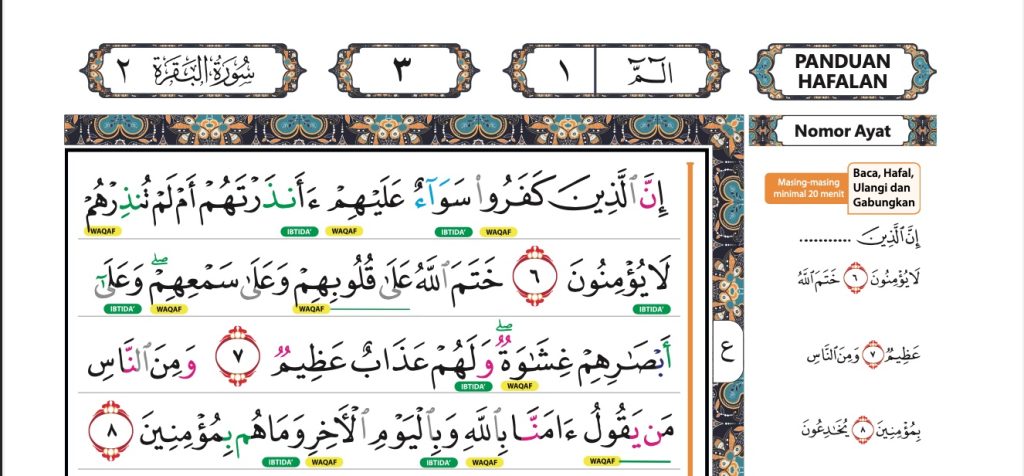 سُورَةُ الْبَقَرَةِ ٢
٣
١ الٓمّٓ
PANDUAN HAFALAN
Nomor Ayat
Masing-masing minimal 20 menit
Baca, Hafal, Ulangi dan Gabungkan
إِنَّ ٱلَّذِينَ كَفَرُوا۟ سَوَآءٌ عَلَيْهِمْ ءَأَنذَرْتَهُمْ أَمْ لَمْ تُنذِرْهُمْ
WAQAF IBTIDA' WAQAF IBTIDA' WAQAF
لَا يُؤْمِنُونَ ٦ خَتَمَ ٱللَّهُ عَلَىٰ قُلُوبِهِمْ وَعَلَىٰ سَمْعِهِمْ ۖ وَعَلَىٰٓ
IBTIDA' WAQAF WAQAF IBTIDA'
أَبْصَـٰرِهِمْ غِشَـٰوَةٌ ۖ وَلَهُمْ عَذَابٌ عَظِيمٌ ٧ وَمِنَ ٱلنَّاسِ
IBTIDA' WAQAF
مَن يَقُولُ ءَامَنَّا بِٱللَّهِ وَبِٱلْيَوْمِ ٱلْـَٔاخِرِ وَمَا هُم بِمُؤْمِنِينَ ٨
IBTIDA' WAQAF IBTIDA' WAQAF WAQAF
ع
إِنَّ ٱلَّذِينَ ...........
لَا يُؤْمِنُونَ ٦ خَتَمَ ٱللَّهُ
عَظِيمٌ ٧ وَمِنَ ٱلنَّاسِ
بِمُؤْمِنِينَ ٨ يُخَـٰدِعُونَ